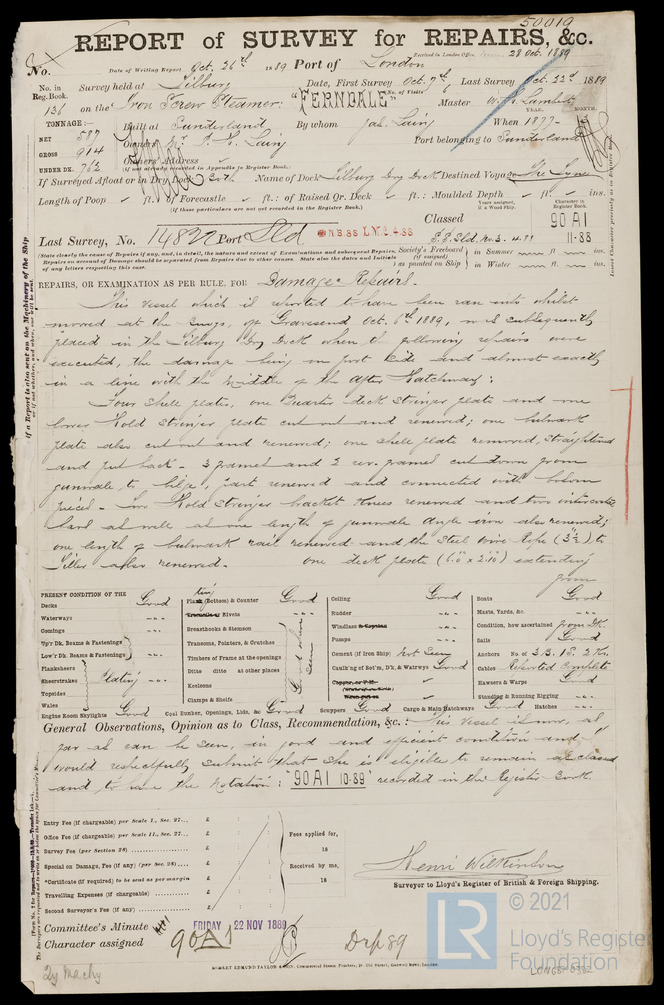 50019
REPORT of SURVEY for REPAIRS, &c.
Received in London Office, 28 Oct. 1889
No. Date of Writing Report Oct. 26th 1889 Port of London
No. in Reg. Book. Survey held at Tilbury Date, First Survey Oct. 7th Last Survey Oct. 22d 1889
136 on the Iron Screw Steamer: "FERNDALE" No. of Visits 6 Master
TONNAGE:— YEAR. MONTH.
NET 587 Built at Sunderland By whom Jas. Laing When 1877
GROSS 914 Owners Port belonging to Sunderland
UNDER DK. 762 Owners' Address
(If not already recorded in Appendix to Register Book.)
If Surveyed Afloat or in Dry Dock Both Name of Dock Tilbury Dry Dock Destined Voyage The Tyne
Length of Poop ft. of Forecastle ft.: of Raised Qr. Deck ft.: Moulded Depth ft. ins.
(If these particulars are not yet recorded in the Register Book.)
Years assigned, if a Wood Ship. Character in Register Book.
Classed 90 A1
11-88
Last Survey, No. 14822 Port Sld N.B.88
(State clearly the cause of Repairs if any, and, in detail, the nature and extent of Examinations and subsequent Repairs. Society's Freeboard in Summer ft. ins.
Repairs on account of Damage should be separated from Repairs due to other causes. State also the dates and initials (if assigned)
of any letters respecting this case. as painted on Ship in Winter ft. ins.
REPAIRS, OR EXAMINATION AS PER RULE, FOR Damage Repairs.
This vessel which is reported to have been ran into whilst
moored at the Buoys, off Gravesend Oct. 6th 1889, was subsequently
placed in the Tilbury Dry Dock when the following repairs were
executed, the damage being on port side and almost exactly
in a line with the middle of the After Hatchway:
Four shell plates, one Quarter deck stringer plate and one
lower Hold stringer plate cut out and renewed; one bulwark
plate also cut out and renewed; one shell plate removed, straightened
and put back - 3 frames and 2 rev. frames cut down from
gunwale to bilge, part renewed and connected with
pieces - two Hold Stringer bracket knees renewed and two intercostal
as well as one length of gunwale angle iron also renewed;
one length of bulwark rail renewed and the steel wire rope (3½") to
Tiller also renewed. one deck plate (6.0 x 2.10) extending
from
PRESENT CONDITION OF THE
Decks Good
Waterways
Comings
Up'r Dk. Beams & Fastenings
Low'r Dk. Beams & Fastenings
Planksheers
Sheerstrakes Plating
Topsides
Wales
Engine Room Skylights Good
Plating (Bottom) & Counter Good
Treenails or Rivets
Breasthooks & Stemson
Transoms, Pointers, & Crutches
Timbers of Frame at the openings
Ditto ditto at other places
Keelsons
Clamps & Shelfs
Good where seen
Coal Bunker, Openings, Lids, &c Good
Ceiling Good
Rudder
Windlass & Capstan
Pumps
Cement (if Iron Ship) Not Seen
Caulk'ng of Bot'm, D'k, & Watrwys Good
Scuppers Good Cargo & Main Hatchways Good
Boats Good
Masts, Yards, &c.
Condition, how ascertained from Dk.
Sails Good
Anchors No. of 3B. 1S. 2K.
Cables Reported Complete
Hawsers & Warps Good
Standing & Running Rigging
Hatches
General Observations, Opinion as to Class, Recommendation, &c.: This vessel is now, as
far as can be seen, in good and efficient condition and I
would respectfully submit that she is eligible to remain as classed
and to have the Notation: "90A1 10-89" recorded in the Register Book.
Entry Fee (if chargeable) per Scale I., Sec. 27... £
Office Fee (if chargeable) per Scale II., Sec. 27... £
Survey Fee (per Section 28) £
Special on Damage, Fee (if any) (per Sec. 28) £
*Certificate (if required) to be sent as per margin £
Travelling Expenses (if chargeable) £
Second Surveyor's Fee (if any) £
Fees applied for,
18
Received by me,
18
Henri Wilkinson
Surveyor to Lloyd's Register of British & Foreign Shipping.
Committee's Minute FRIDAY 22 NOV 1889
Character assigned 90A1
© 2021
LR
Lloyd's Register
Foundation